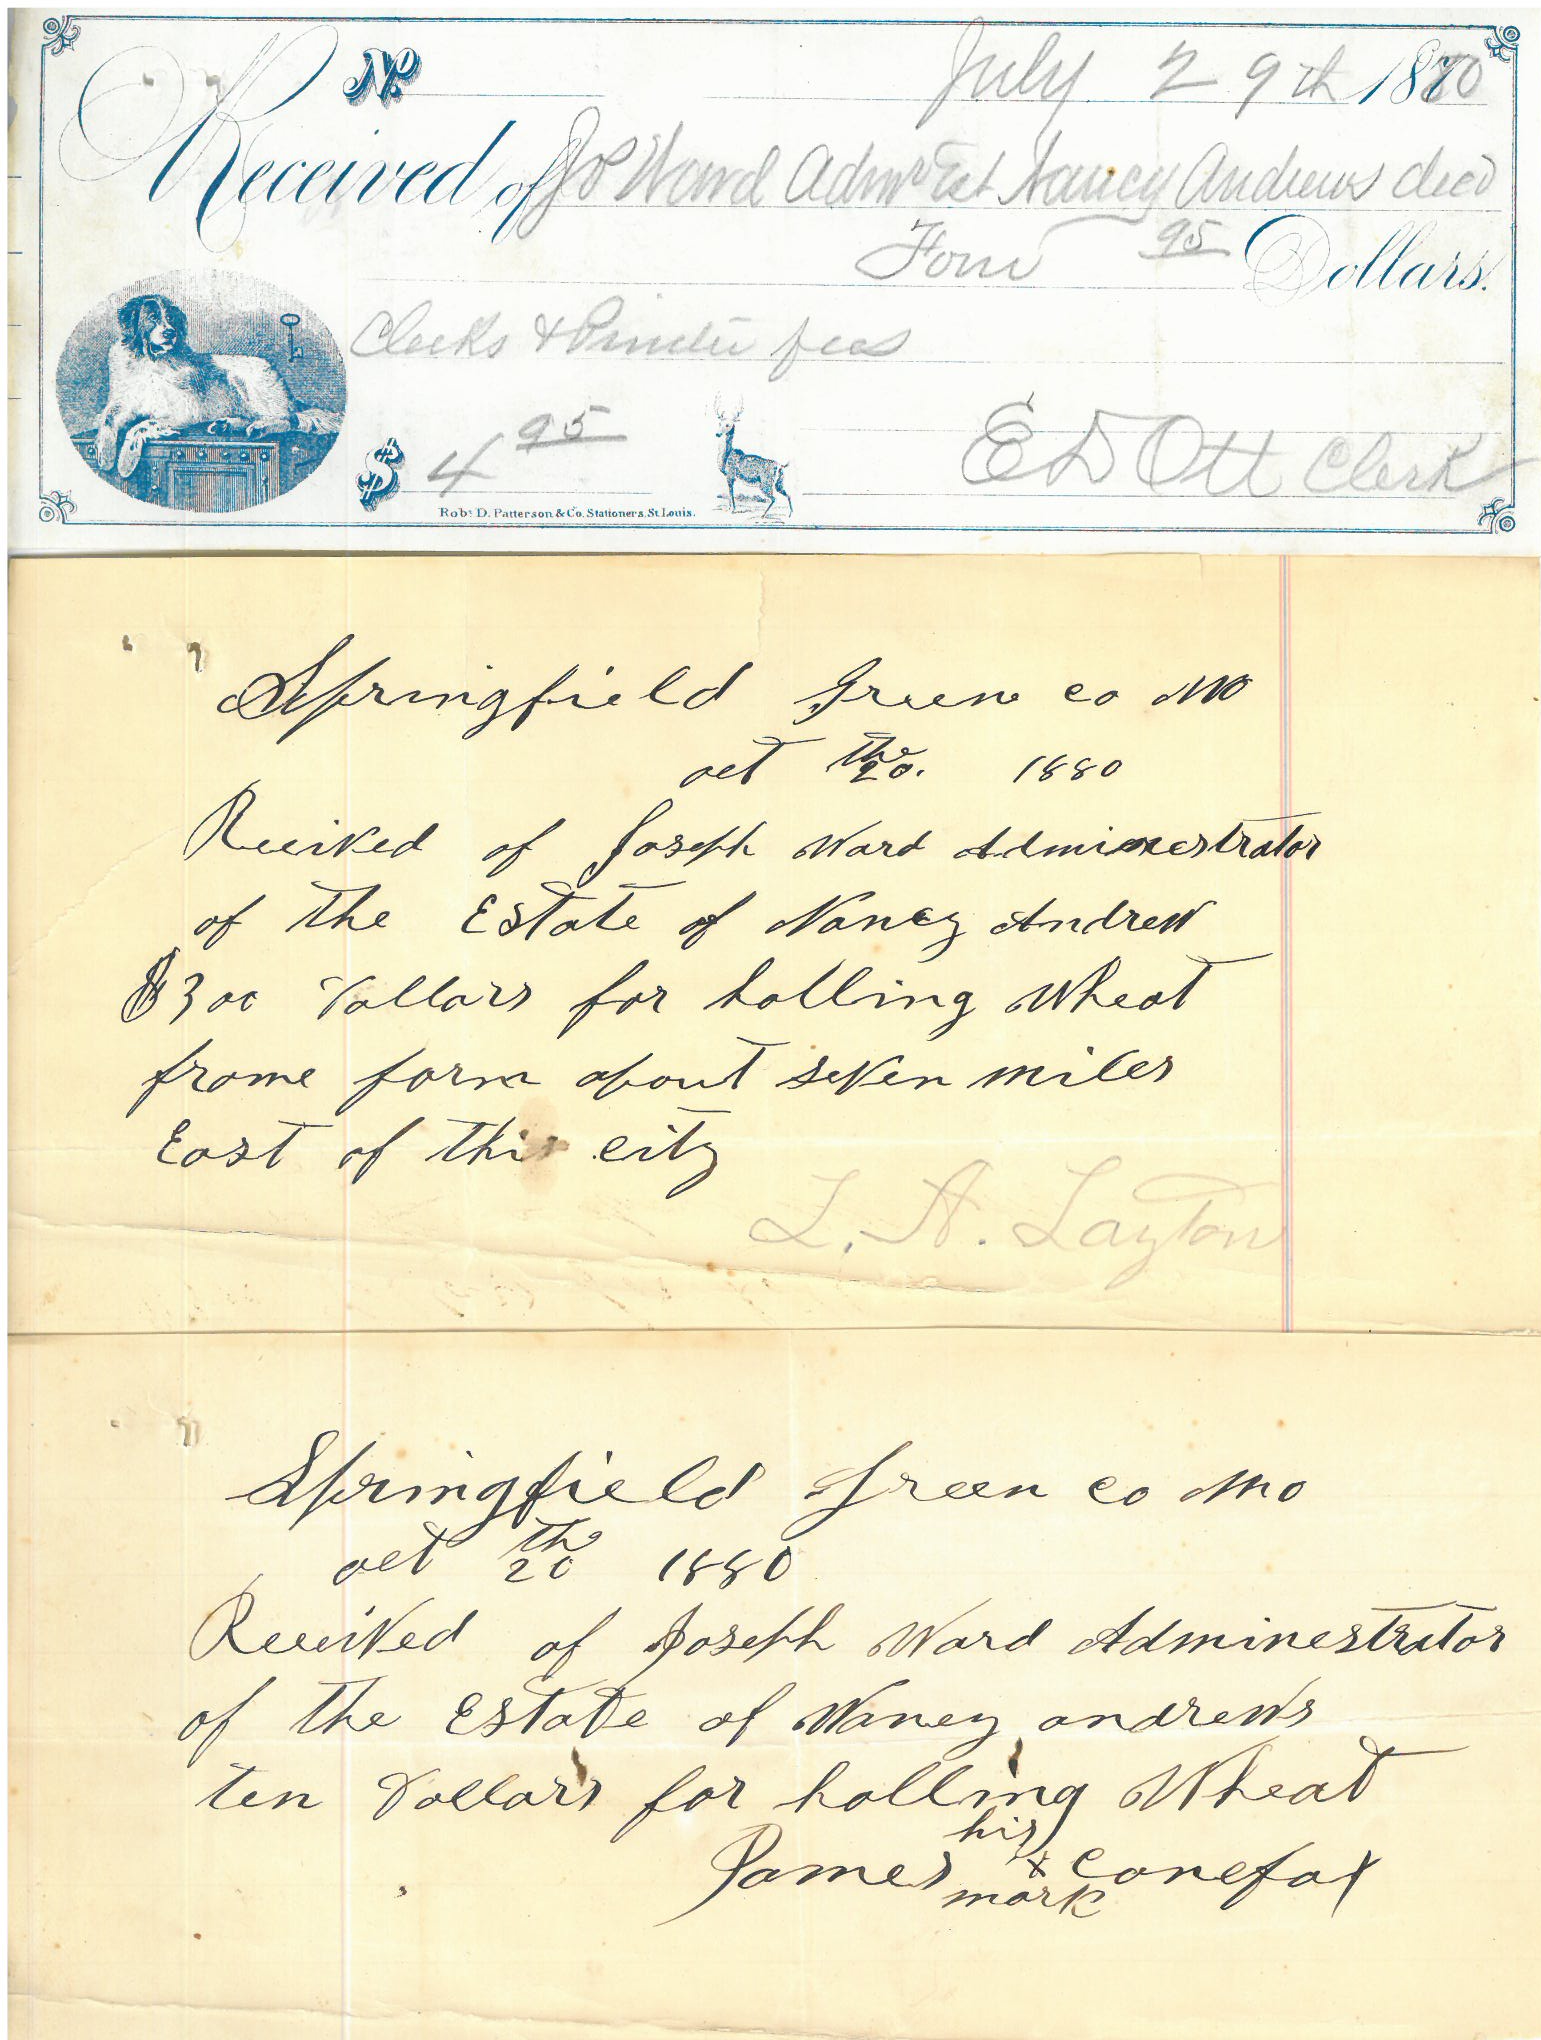 No. July 29th 1880
Received of Jos Ward Admr Est Nancy Andrews decd
Four 95 Dollars.
Clerks & Printer fees
$ 4 95 E D Ott Clerk
Robt. D. Patterson & Co. Stationers, St. Louis.
Springfield Green co Mo
oct the 20. 1880
Received of Joseph Ward Adminestrator
of the Estate of Nancy Andrew
$3 00 Dollars for halling Wheat
frome farm about seven miles
East of this city
L. A. Layton
Springfield Green co Mo
oct th 20 1880
Received of Joseph Ward Adminestrator
of the Estate of Nancy andrews
ten Dollars for halling Wheat
his
James x Canefax
mark